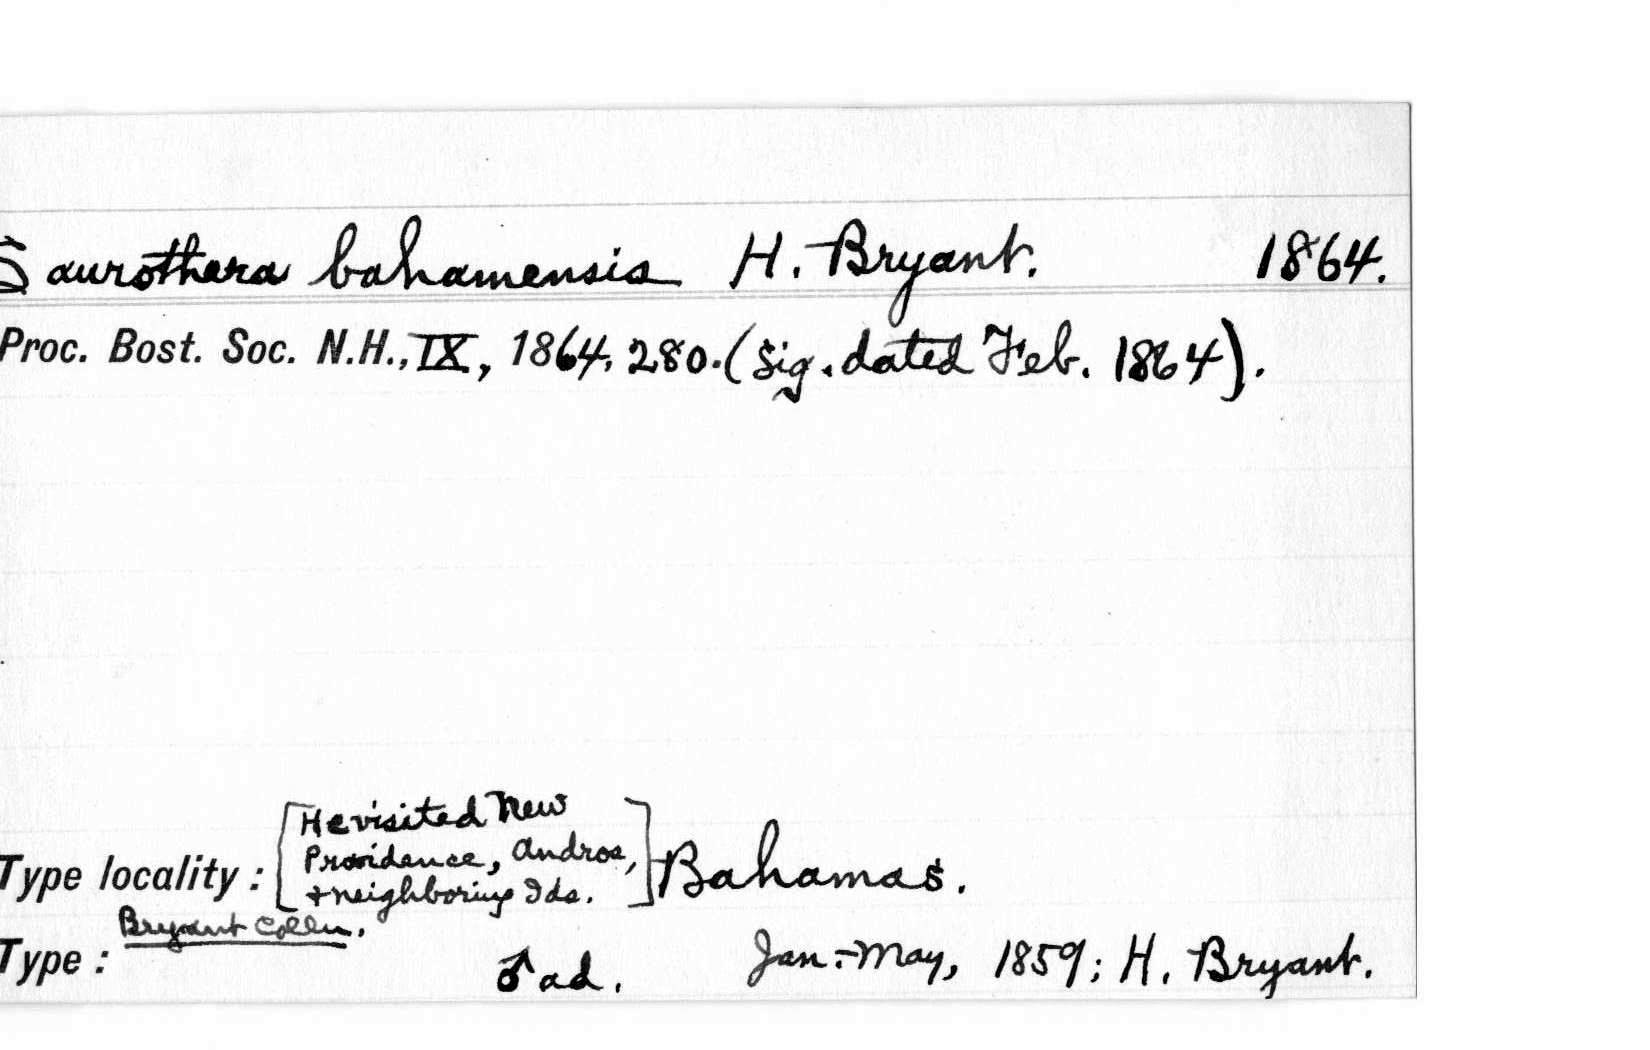 Saurothera bahamensis H. Bryant. 1864.
Proc. Bost. Soc. N.H., IX, 1864, 280. (Sig. dated Feb. 1864).
[He visited New
Providence, Andros,
+ neighboring Ids.]
Type locality: Bahamas.
Bryant Colln.
Type: ♂ ad. Jan.-May, 1859; H. Bryant.